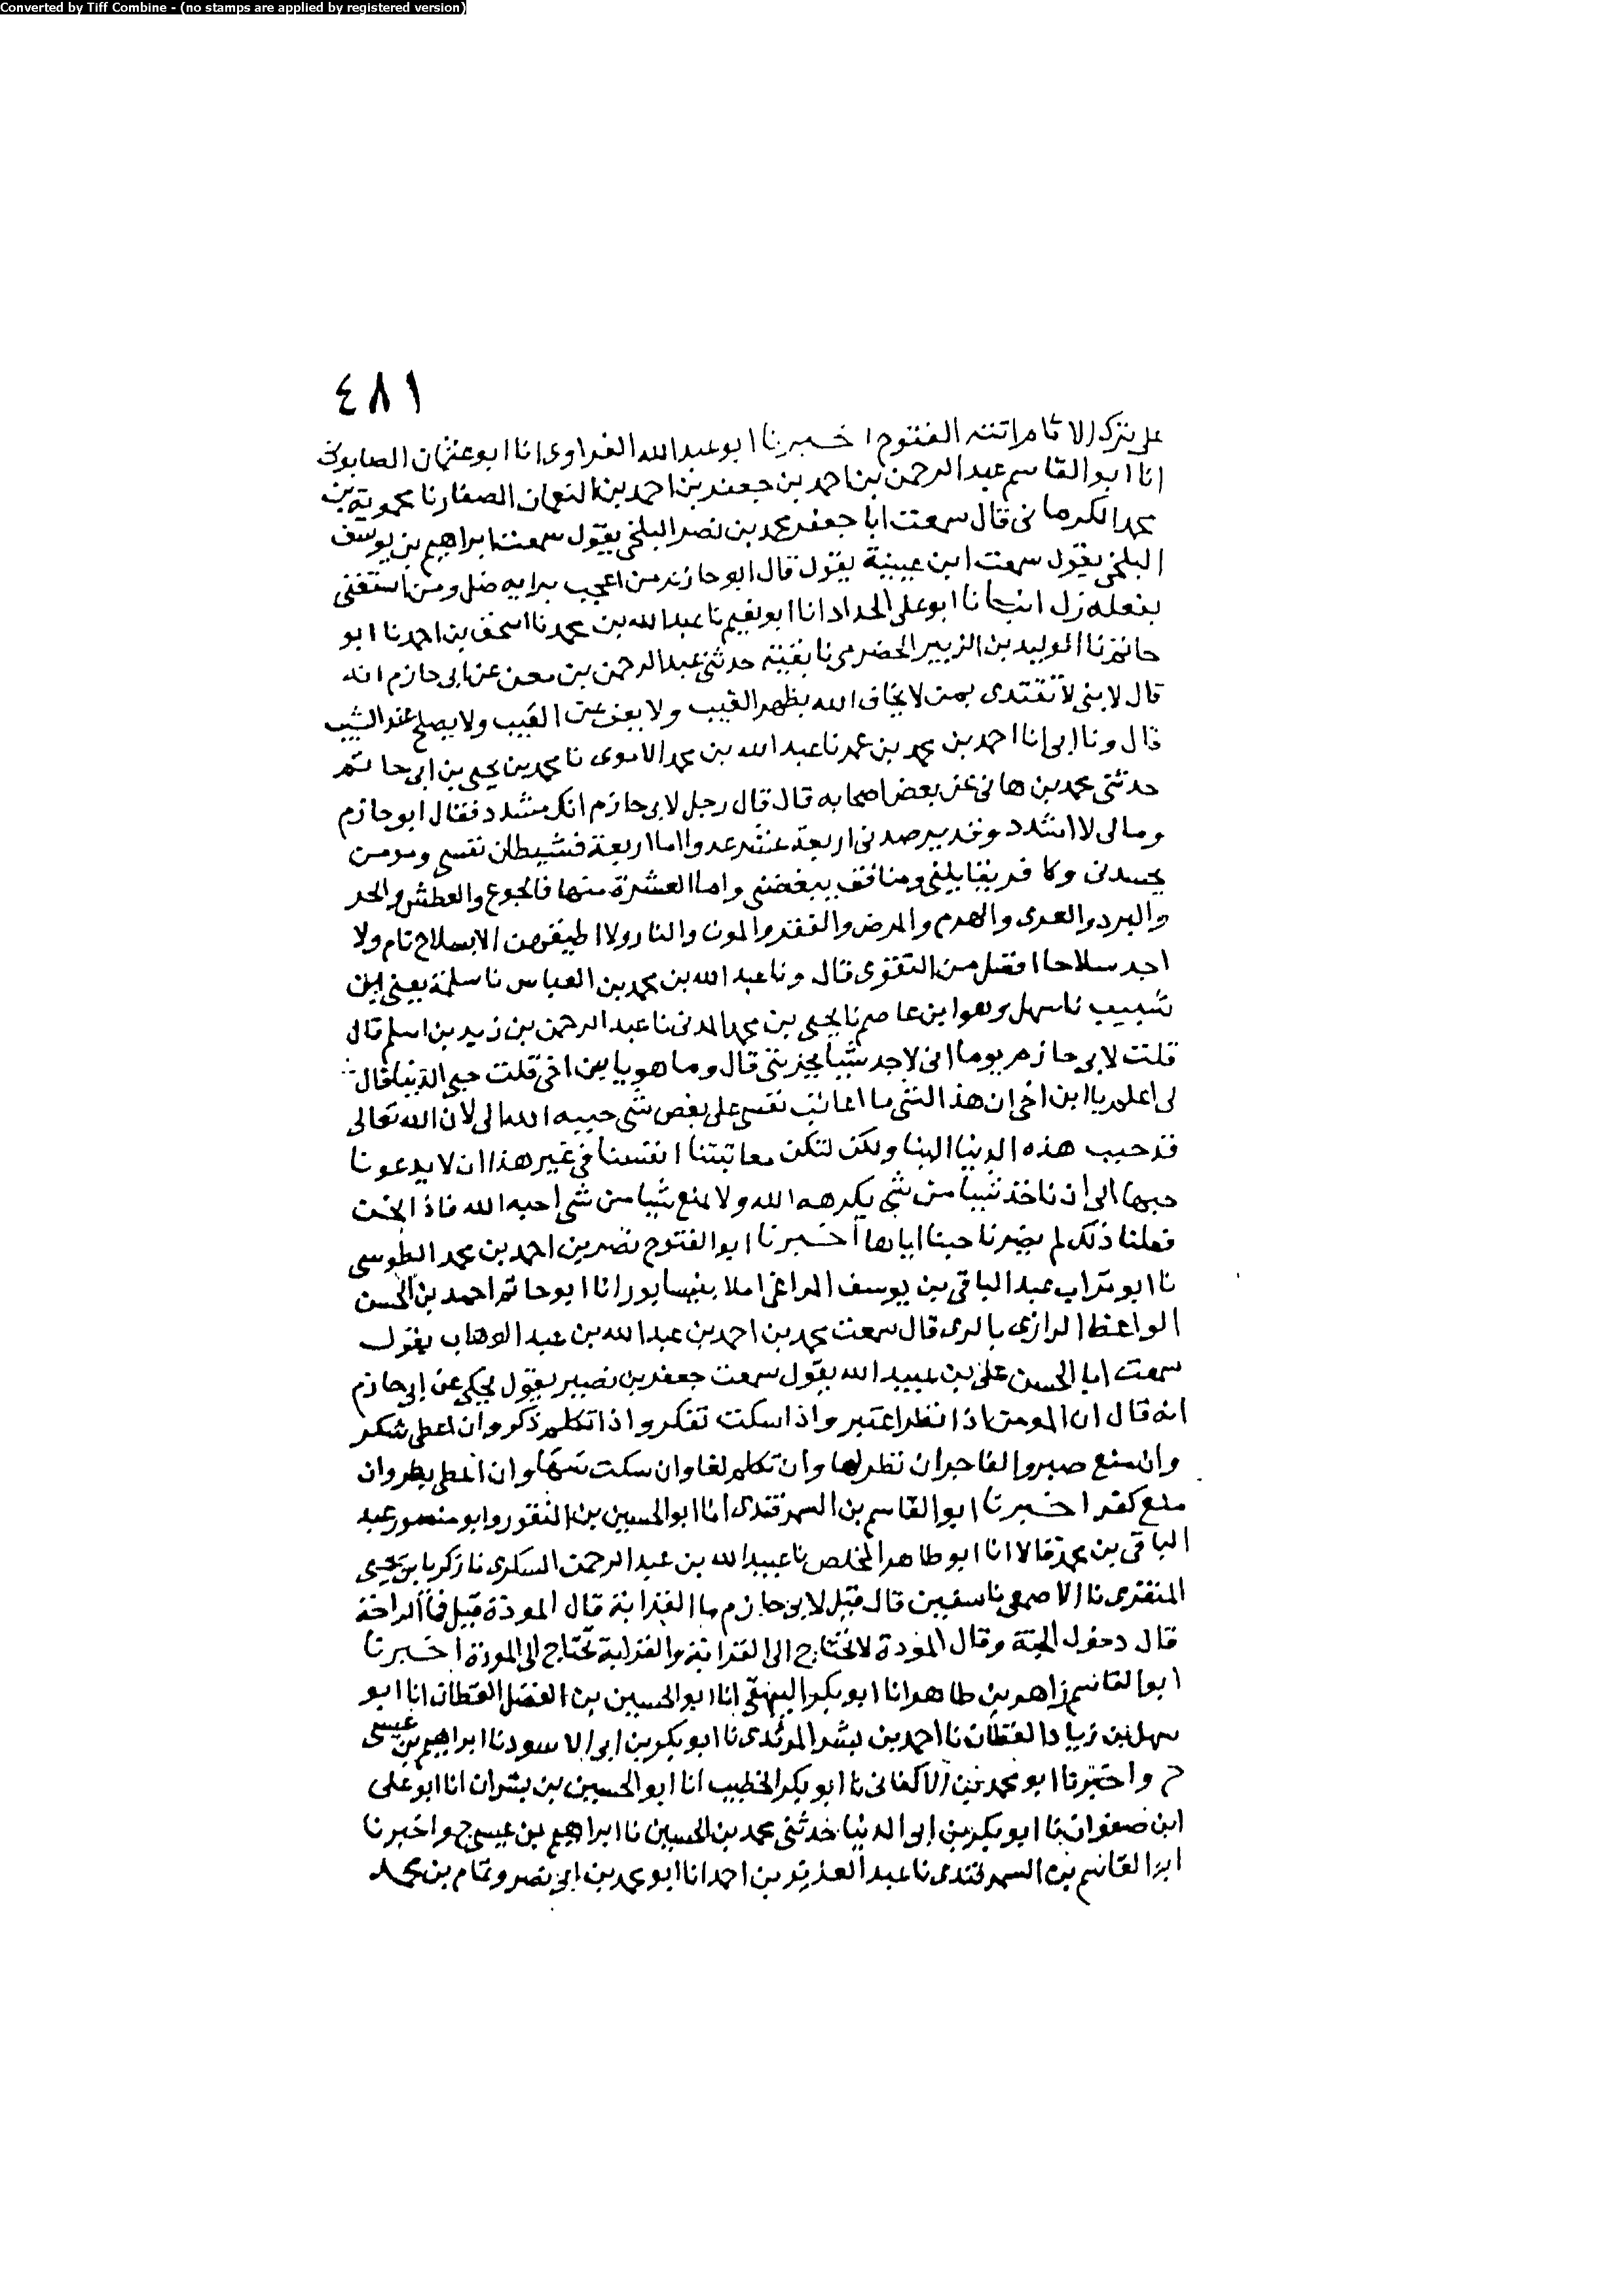 Converted by Tiff Combine - (no stamps are applied by registered version)
٤٨١
على ترك الاثام اتته الفتوح اخبرنا ابو عبد الله الفراوى انا ابو عثمان الصابونى
انا ابو القاسم عبد الرحمن بن احمد بن جعفر بن احمد بن النعمان الصفار نا محمويه بن
محمد الكرمانى قال سمعت ابا جعفر محمد بن نصر البلخى يقول سمعت ابراهيم بن يوسف
البلخى يقول سمعت ابن عيينة يقول قال ابو حازم من اعجب برايه ضل ومن استغنى
بنعله زل انبانا ابو على الحداد انا ابو نعيم نا عبد الله بن محمد نا اسحق بن احمد نا ابو
حاتم نا الوليد بن الزبير الحضرمى نا بقية حدثنى عبد الرحمن بن معن عن ابى حازم انه
قال لا بنى لا تقتدى بمن لا يخاف الله بظهر الغيب ولا يعف عن العيب ولا يصلح عند الشيب
قال ونا ابى انا احمد بن محمد بن عمر نا عبد الله بن محمد الاموى نا محمد بن يحيى بن ابى حاتم
حدثنى محمد بن هانى عن بعض اصحابه قال قال رجل لابى حازم انك متشدد فقال ابو حازم
ومالى لا اتشدد وقد يرصدنى اربعة عشر عدوا اما اربعة فشيطان نفسى ومومن
يحسدنى وكافر يقابلنى ومنافق يبغضنى واما العشرة منها فالجوع والعطش والحر
والبرد والعرى والهرم والمرض والفقر والموت والنار ولا اطيقهن الا بسلاح تام ولا
اجد سلاحا افضل من التقوى قال ونا عبد الله بن محمد بن العباس نا سلمة يعنى ابن
شبيب نا سهل وهو ابن عاصم نا يحيى بن محمد المدنى نا عبد الرحمن بن زيد بن اسلم قال
قلت لابى حازم يوما انى لاجد شيا يحزننى قال وما هو يا بن اخى قلت حبى الدنيا قال
لى اعلم يا ابن اخى ان هذا الشى ما اعاتب نفسى على بغض شى حببه الله الى لان الله تعالى
قد حبب هذه الدنيا الينا ولكن لتكن معاتبتنا انفسنا فى غير هذا ان لا يدعونا
حبها الى ان ناخذ شيا من شى يكرهه الله ولا نمنع شيا من شى احبه الله فاذا نحن
فعلنا ذلك لم يضرنا حبنا اياها اخبرنا ابو الفتوح نصر بن احمد بن محمد الطوسى
نا ابو تراب عبد الباقى بن يوسف المراغى املا بنيسابور انا ابو حاتم احمد بن الحسن
الواعظ الرازى بالرى قال سمعت محمد بن احمد بن عبد الله بن عبد الوهاب يقول
سمعت ابا الحسن على بن عبيد الله يقول سمعت جعفر بن نصير يقول يحكى عن ابى حازم
انه قال ان المومن اذا نظر اعتبر واذا سكت تفكر واذا تكلم ذكر وان اعطى شكر
وان منع صبر والفاجر ان نظر لها وان تكلم لغا وان سكت سها وان اعطى بطر وان
منع كفر اخبرنا ابو القاسم بن السمرقندى انا ابو الحسين بن النقور وابو منصور عبد
الباقى بن محمد قالا انا ابو طاهر المخلص نا عبيد الله بن عبد الرحمن السكرى نا زكريا بن يحيى
المنقرى نا الاصمعى نا سفين قال قيل لابى حازم ما القرابة قال المودة قيل فما الراحة
قال دخول الجنة وقال المودة لا تحتاج الى القرابة والقرابة تحتاج الى المودة اخبرنا
ابو القاسم زاهر بن طاهر انا ابو بكر البيهقى انا ابو الحسين بن الفضل القطان انا ابو
سهل بن زياد القطان نا احمد بن بشر المرثدى نا ابو بكر بن ابى الاسود نا ابراهيم بن عيسى
ح واخبرنا ابو محمد بن الاكفانى نا ابو بكر الخطيب انا ابو الحسين بن بشران انا ابو على
ابن صفوان نا ابو بكر بن ابى الدنيا حدثنى محمد بن الحسين نا ابراهيم بن عيسى ح واخبرنا
ابو القاسم بن السمرقندى نا عبد العزيز بن احمد انا ابو محمد بن ابى نصر وتمام بن محمد